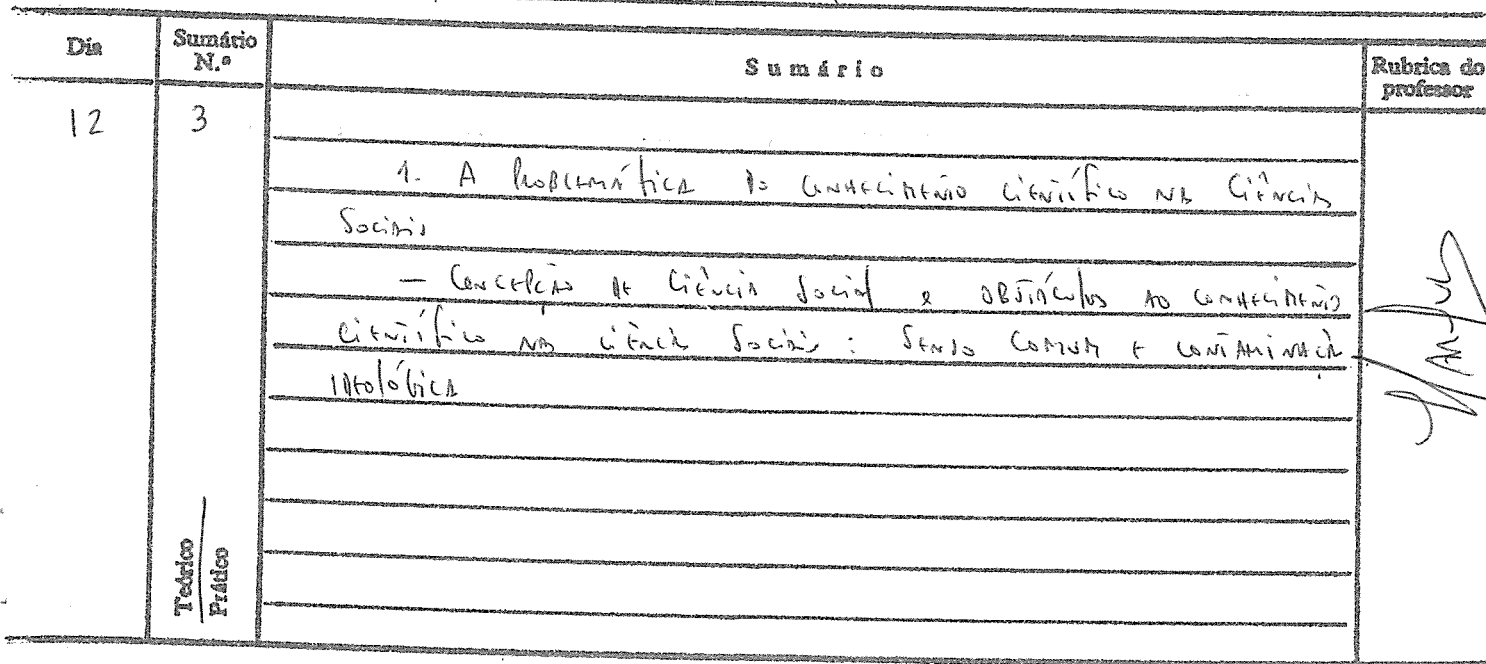 Dia Sumário N.º Sumário Rubrica do professor
12 3
1. A Problemática do conhecimento científico nas Ciências
Sociais
— Concepção de Ciência Social e obstáculos ao conhecimento
científico nas ciências Sociais: Senso Comum e contaminação
ideológica
Teórico
Prático